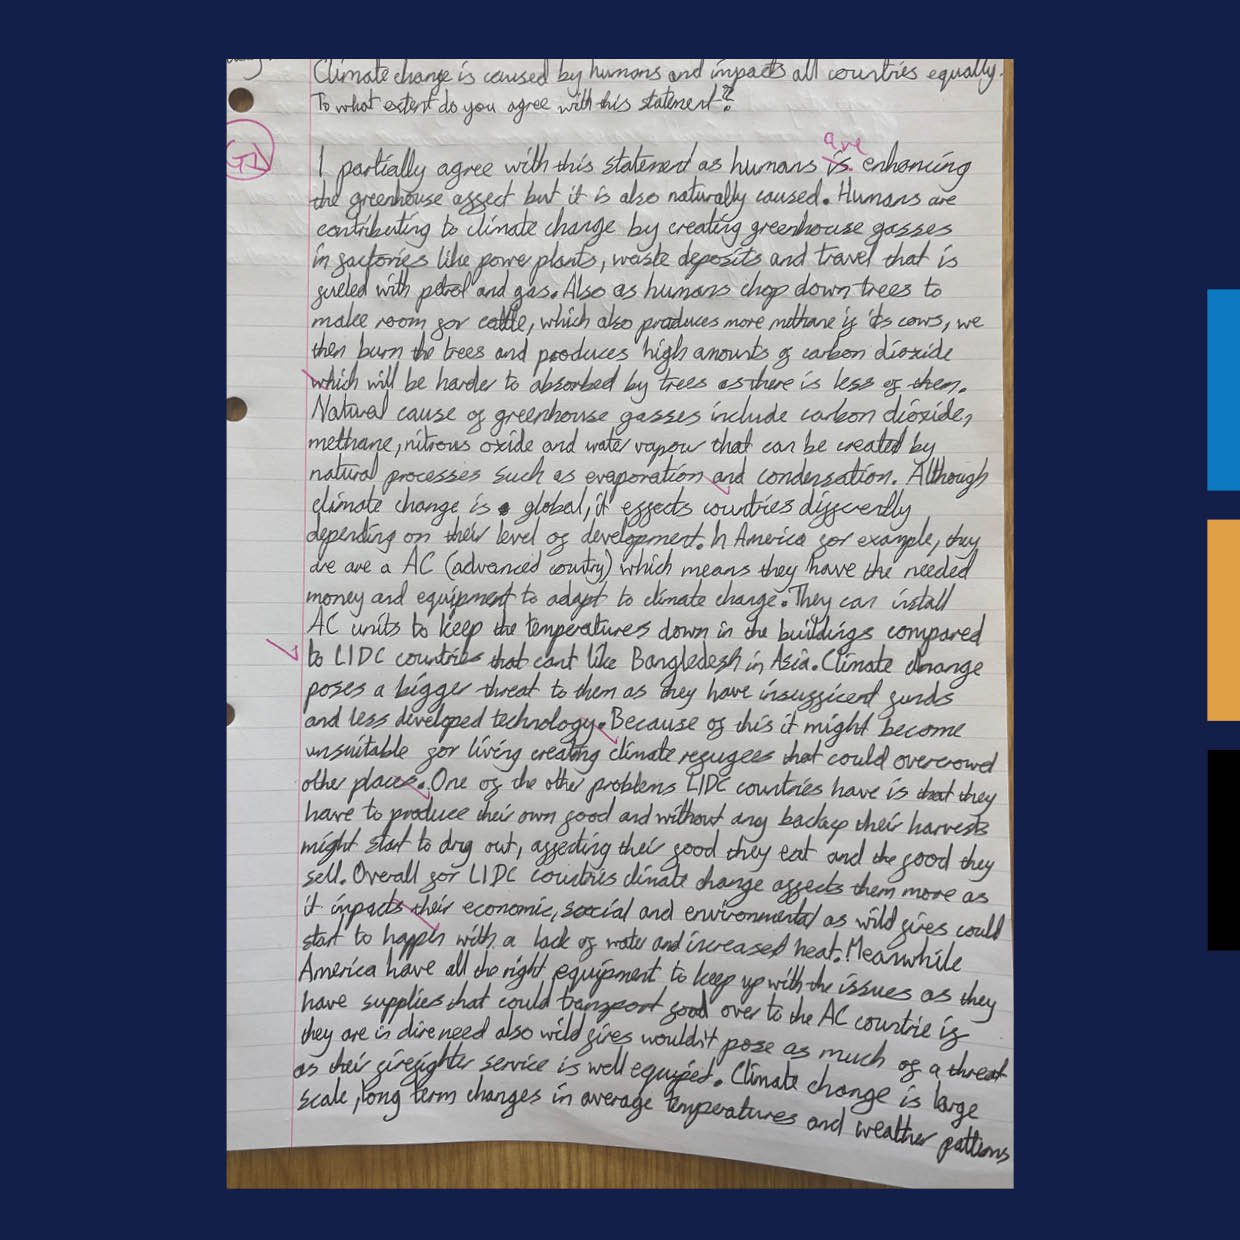 Climate change is caused by humans and impacts all countries equally.
To what extent do you agree with this statement?
are
I partially agree with this statement as humans is enhancing
the greenhouse affect but it is also naturally caused. Humans are
contributing to climate change by creating greenhouse gasses
in factories like power plants, waste deposits and travel that is
fueled with petrol and gas. Also as humans chop down trees to
make room for cattle, which also produces more methane if its cows, we
then burn the trees and produces high amounts of carbon dioxide
which will be harder to absorbed by trees as there is less of them.
Natural cause of greenhouse gasses include carbon dioxide,
methane, nitrous oxide and water vapour that can be created by
natural processes such as evaporation and condensation. Although
climate change is global, it effects countries differently
depending on their level of development. In America for example, they
are are a AC (advanced country) which means they have the needed
money and equipment to adapt to climate change. They can install
AC units to keep the temperatures down in the buildings compared
to LIDC countries that cant like Bangledesh in Asia. Climate change
poses a bigger threat to them as they have insufficent funds
and less developed technology. Because of this it might become
unsuitable for living creating climate refugees that could overcrowd
other places. One of the other problems LIDC countries have is that they
have to produce their own food and without any backup their harvests
might start to dry out, affecting their food they eat and the food they
sell. Overall for LIDC countries climate change affects them more as
it impacts their economic, social and environmental as wild fires could
start to happen with a lack of water and increased heat. Meanwhile
America have all the right equipment to keep up with the issues as they
have supplies that could transport food over to the AC countrie if
they are in dire need also wild fires wouldn't pose as much of a threat
as their firefighter service is well equiped. Climate change is large
scale, long term changes in average temperatures and weather patterns